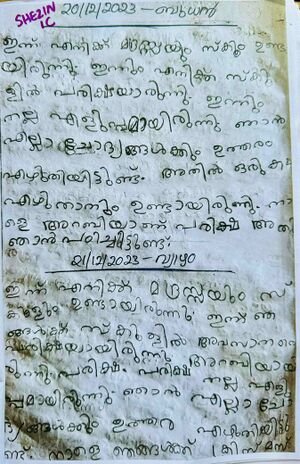 SHEZIN
I.C
20/12/2023 - ബുധൻ
ഇന്ന് എനിക്ക് മദ്രസ്സയും സ്കൂളും ഉണ്ടാ
യിരുന്നു. ഇന്നും എനിക്ക് സ്കൂ
ളിൽ പരിക്ഷയായിരുന്നു. ഇന്നും
നല്ല എളുപ്പമായിരുന്നു ഞാൻ
എല്ലാ ചോദ്യങ്ങൾക്കും ഉത്തരം
എഴുതിയിട്ടുണ്ട്. അതിൽ ഒരു കഥ
എഴുതാനും ഉണ്ടായിരുന്നു. നാ
ളെ അറബിയാണ് പരിക്ഷ അതി
ഞാൻ പഠിച്ചിട്ടുണ്ട്.
21/12/2023 - വ്യാഴം
ഇന്ന് എനിക്ക് മദ്രസ്സയും സ്
കൂളും ഉണ്ടായിരുന്നു ഇന്ന് ഞ
ങ്ങൾക്ക് സ്കൂളിൽ അവസാനത്തെ
പരിക്ഷയായിരുന്നു അറബിയായി
രുന്നു പരിക്ഷ. പരിക്ഷ നല്ല എളു
പ്പമായിരുന്നു ഞാൻ എല്ലാ ചോ
ദ്യങ്ങൾക്കും ഉത്തരം എഴുതിയിട്ടു
ണ്ട്. നാളെ ഞങ്ങൾക്ക് ക്രിസ്മസ്